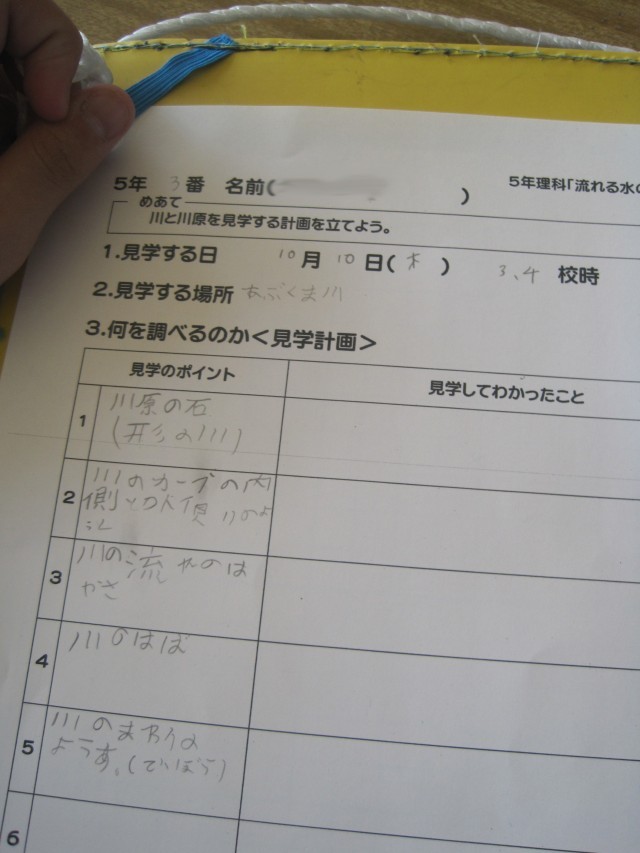 5年 3番 名前( )
5年理科「流れる水の
めあて
川と川原を見学する計画を立てよう。
1.見学する日 10月 10日(木) 3、4 校時
2.見学する場所 あぶくま川
3.何を調べるのか<見学計画>
見学のポイント
見学してわかったこと
1
川原の石
2
川のカーブの内
側と外側
3
川の流れのは
やさ
4
川のはば
5
川のまわりの
ようす。(ていぼう)
6